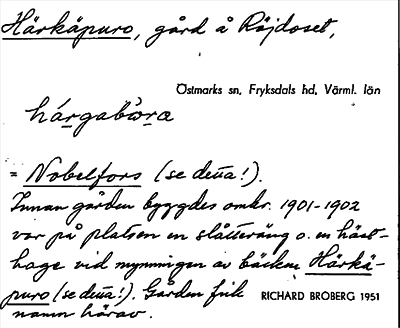 Härkäpuro, gård å Röjdoset,
Östmarks sn, Fryksdals hd, Värml. län
hárgabu̇ora
= Nobelfors (se detta!).
Innan gården byggdes omkr. 1901-1902
var på platsen en slåtteräng o. en häst-
hage vid mynningen av bäcken Härkä-
puro (se detta!). Gården fick
namn härav.
RICHARD BROBERG 1951